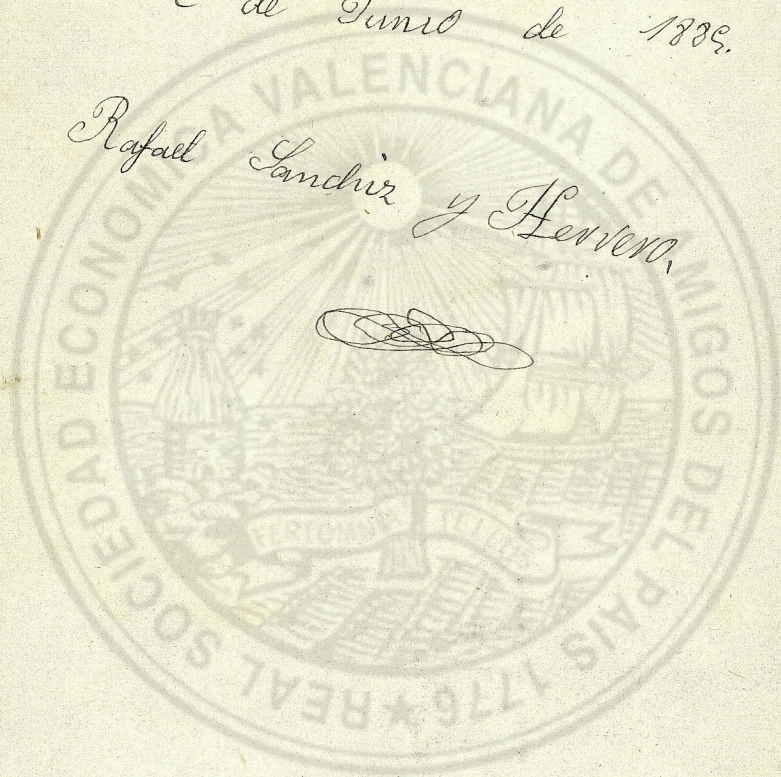 de Junio de 1889.
Rafael Sanchiz y Herrero.
REAL SOCIEDAD ECONOMICA VALENCIANA DE AMIGOS DEL PAIS 1776
FERT OMNIA TELLUS